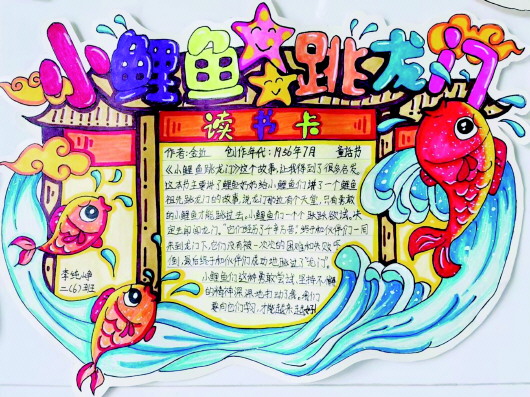 小鲤鱼跳龙门
读书卡
作者:金近 创作年代:1956年7月 童话节
《小鲤鱼跳龙门》这个故事,让我得到了很多启发。
这本书主要讲了鲤鱼奶奶给小鲤鱼们讲了一个鲤鱼
祖先跳龙门的故事,说龙门那边有个天堂,只有勇敢
的小鱼才能跳过去。小鲤鱼们一个个跃跃欲试,决
定出门闯龙门。它们经历了千辛万苦
和伙伴们一同
来到龙门下,它们没有被一次次的困难和失败吓
倒,最后终于和伙伴们成功地跳过了"龙门"。
小鲤鱼们这种勇敢尝试,坚持不懈
的精神深深地打动了我。我们
要向它们学习,才能越来越好!
李纯坤
二(6)班